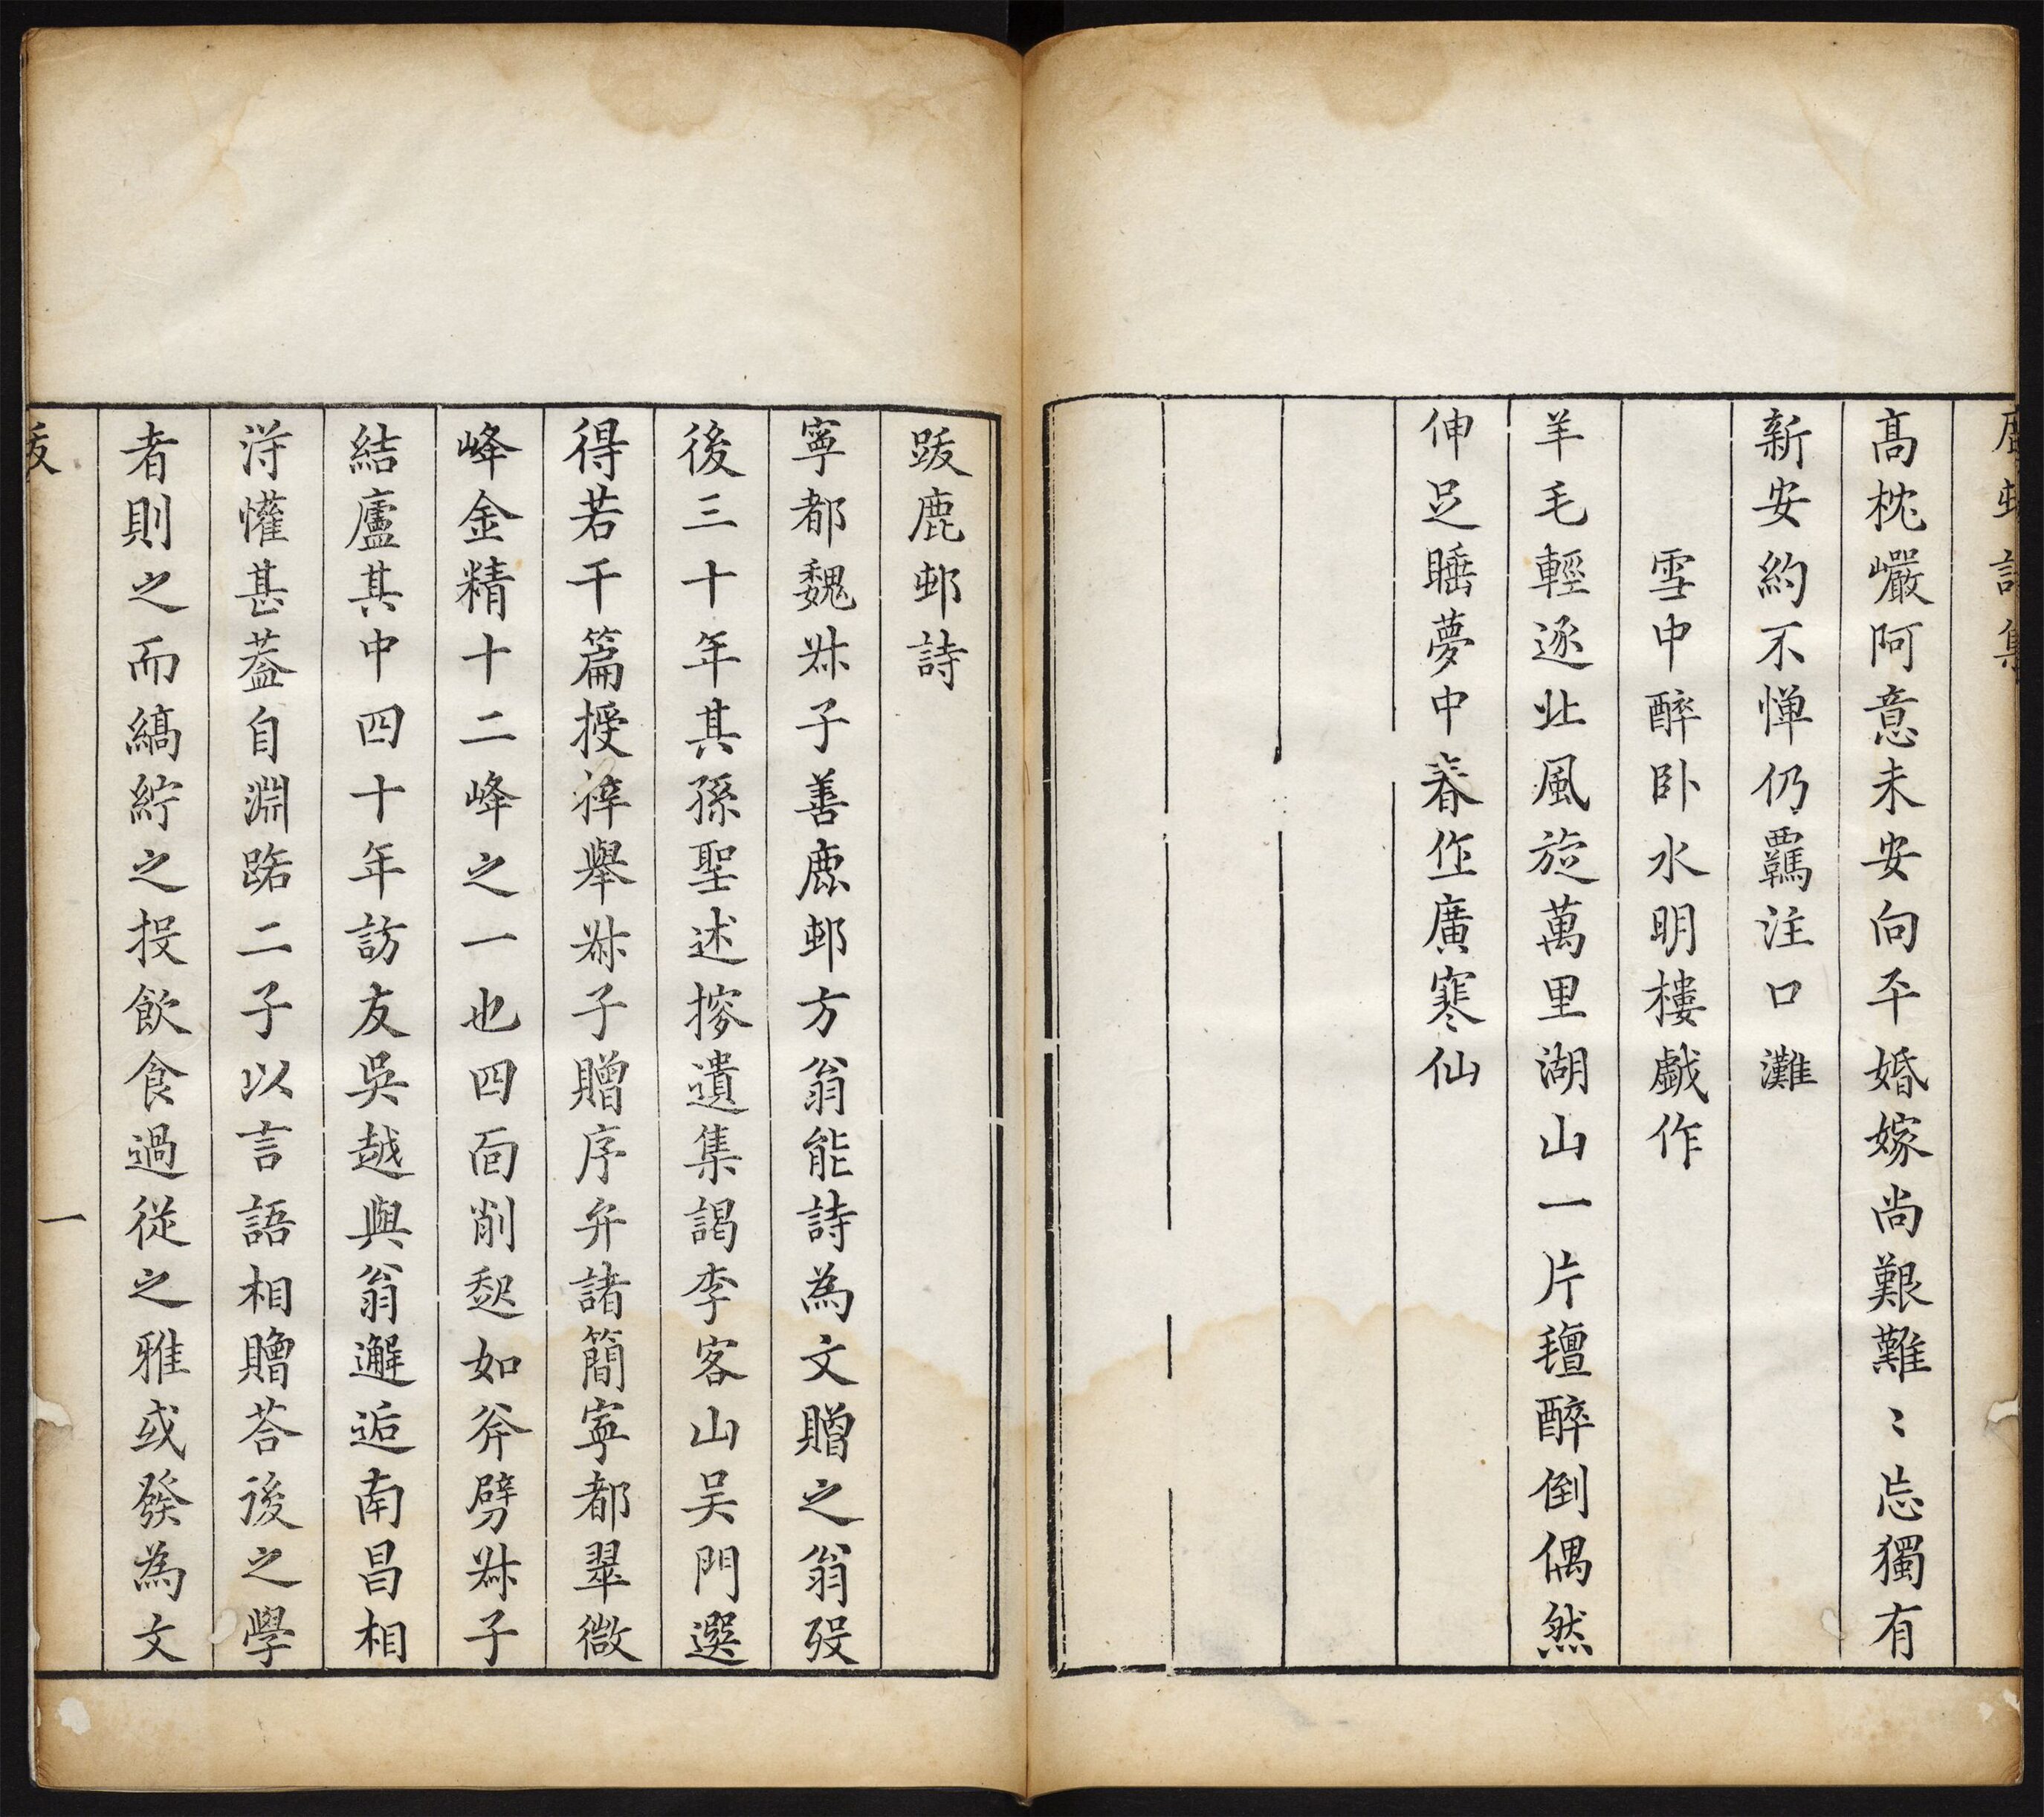 鹿邨詩集
高枕巖阿意未安向平婚嫁尚艱難〻忘獨有
新安約不憚仍羈注口灘
雪中醉卧水明樓戯作
羊毛輕逐北風旋萬里湖山一片氊醉倒偶然
伸足睡夢中春作廣寒仙
跋鹿邨詩
寧都魏叔子善鹿邨方翁能詩為文贈之翁歿
後三十年其孫聖述攜遺集謁李客山吴門選
得若干篇授梓舉叔子贈序弁諸簡寧都翠微
峰金精十二峰之一也四面削起如斧劈叔子
結廬其中四十年訪友吳越與翁邂逅南昌相
得懽甚葢自淵路二子以言語相贈荅後之學
者則之而縞紵之投飲食過從之雅或發為文
跋
一